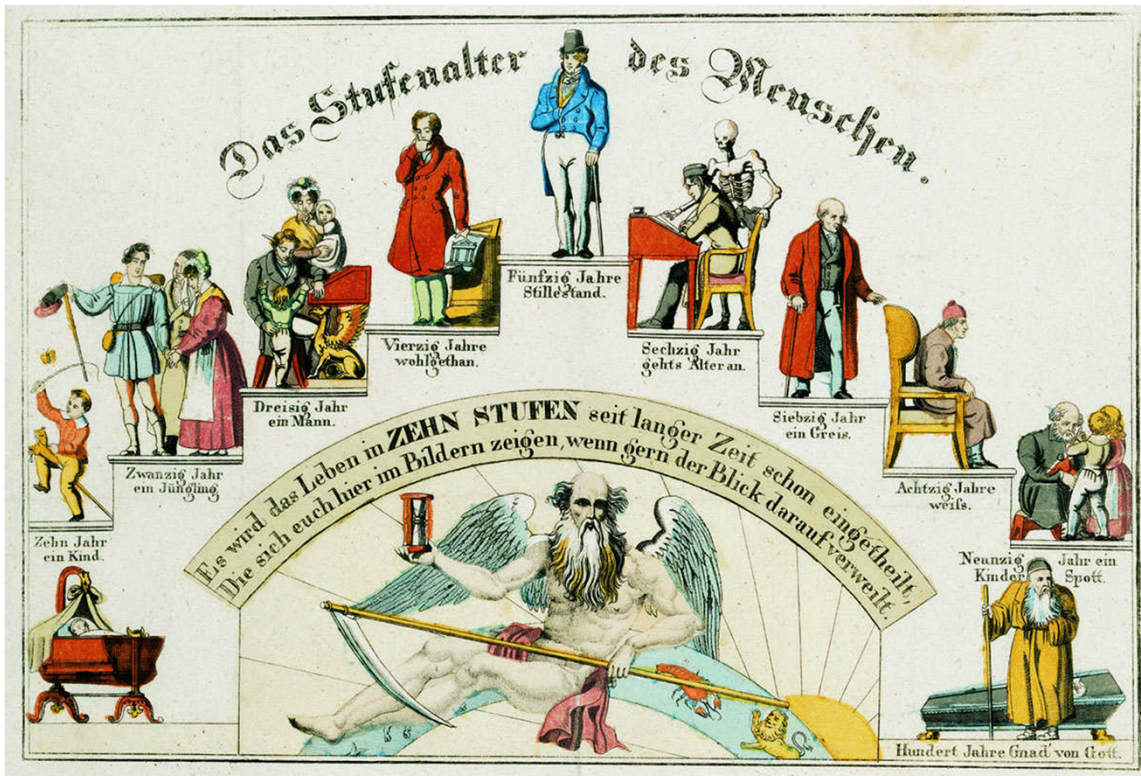 Das Stufenalter des Menschen.
Zehn Jahr
ein Kind.
Zwanzig Jahr
ein Jüngling
Dreisig Jahr
ein Mann.
Vierzig Jahre
wohlgethan.
Fünfzig Jahre
Stillestand.
Sechzig Jahr
gehts Alter an.
Siebzig Jahr
ein Greis.
Achtzig Jahre
weiss.
Neunzig Jahr ein
Kinder Spott.
Hundert Jahre Gnad' von Gott.
Es wird das Leben in ZEHN STUFEN seit langer Zeit schon eingetheilt,
Die sich euch hier im Bildern zeigen, wenn gern der Blick darauf verweilt.